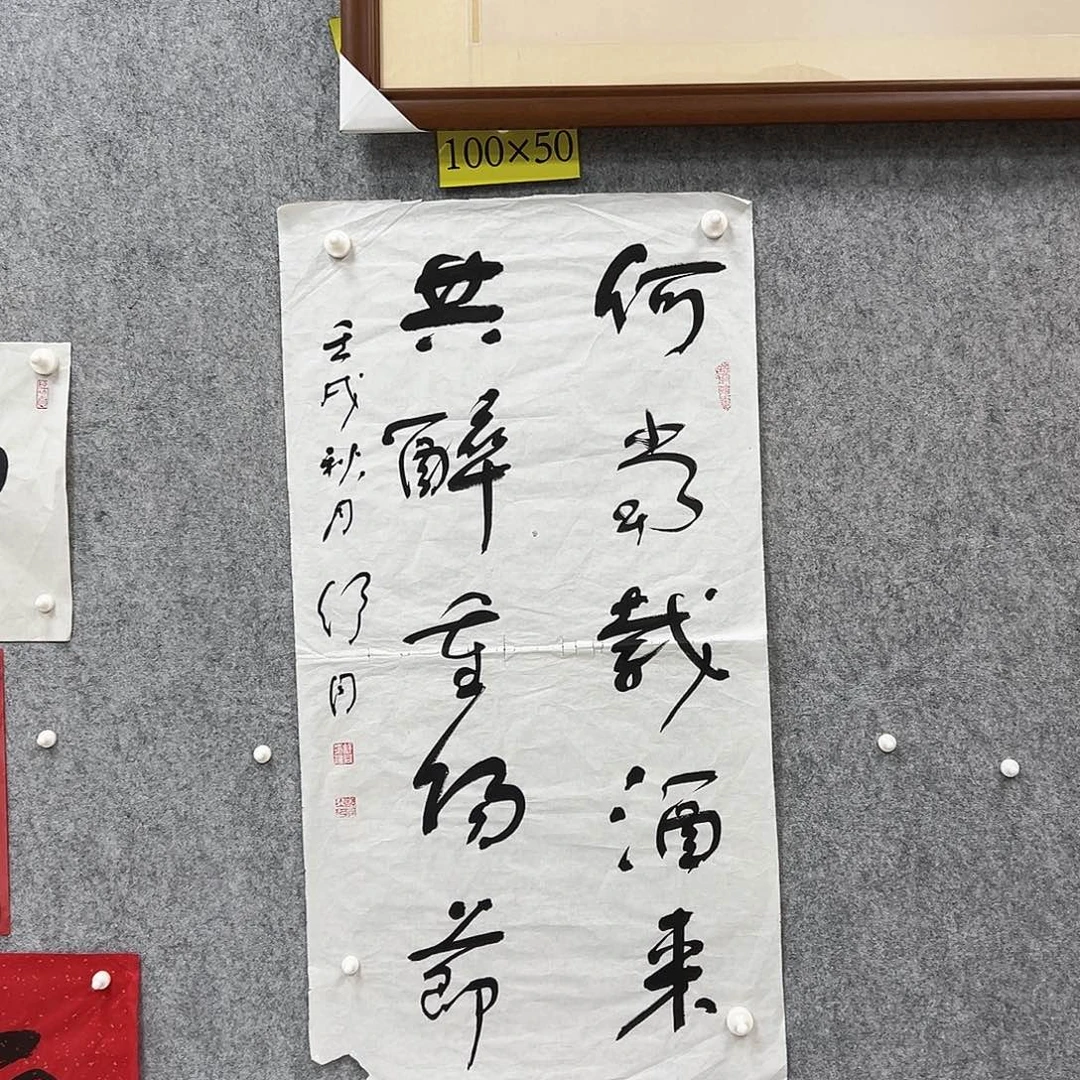 100×50
何當載酒来
共醉重陽節
壬戌秋月舒同